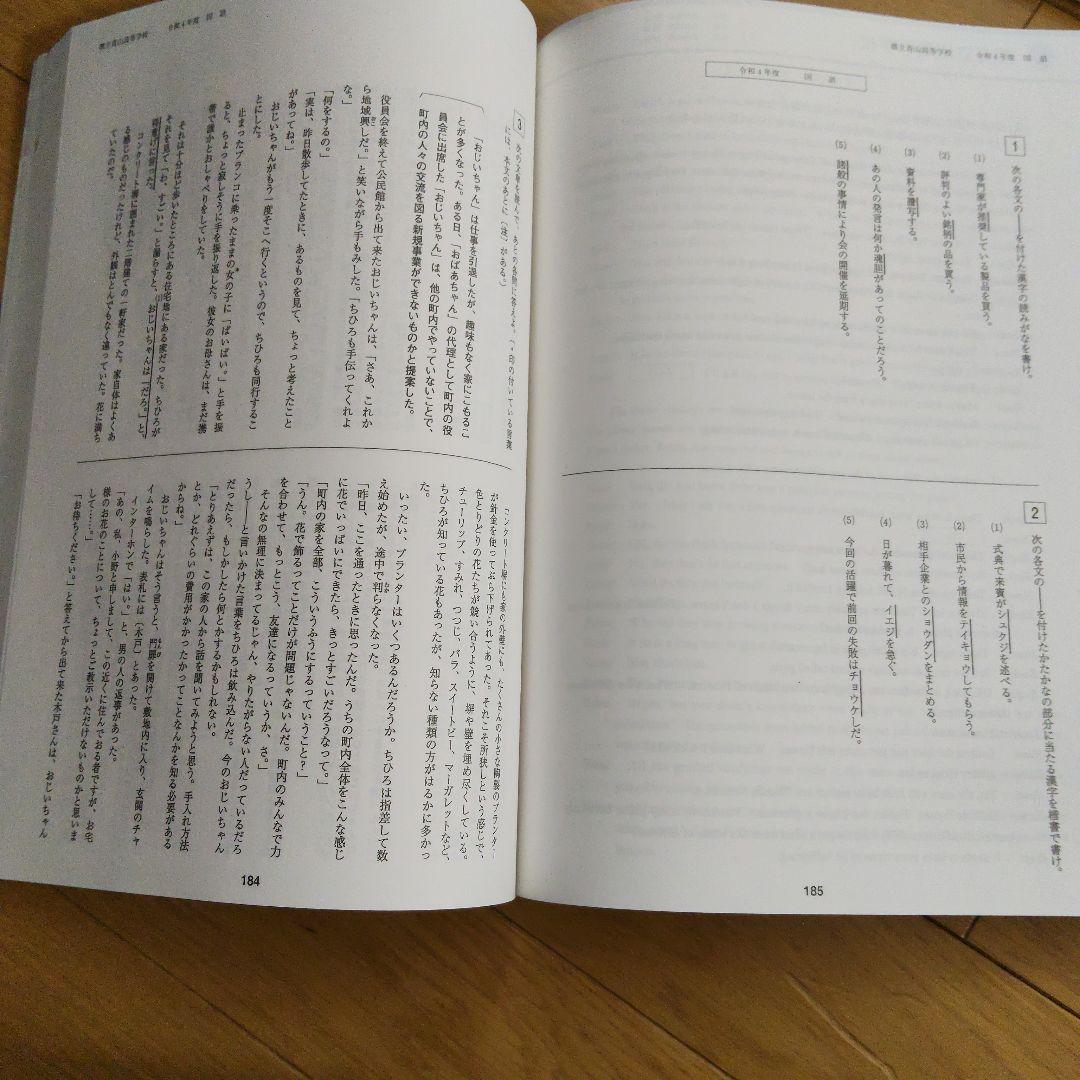 都立青山高等学校　　令和4年度　国　語
令和4年度　　国　語
1　次の各文の――を付けた漢字の読みがなを書け。
(1)　専門家が推奨している製品を買う。
(2)　評判のよい銘柄の品を買う。
(3)　資料を謄写する。
(4)　あの人の発言は何か魂胆があってのことだろう。
(5)　諸般の事情により会の開催を延期する。
2　次の各文の――を付けたかたかなの部分に当たる漢字を楷書で書け。
(1)　式典で来賓がシュクジを述べる。
(2)　市民から情報をテイキョウしてもらう。
(3)　相手企業とのショウダンをまとめる。
(4)　日が暮れて、イエジを急ぐ。
(5)　今回の活躍で前回の失敗はチョウケしだ。
185
都立青山高等学校　　令和4年度　国　語
3　次の文章を読んで、あとの各問に答えよ。（*印の付いている言葉
には、本文のあとに〔注〕がある。）
「おじいちゃん」は仕事を引退したが、趣味もなく家にこもるこ
とが多くなった。ある日、「おばあちゃん」の代理として町内の役
員会に出席した「おじいちゃん」は、他の町内でやっていないことで、
町内の人々の交流を図る新規事業ができないものかと提案した。
役員会を終えて公民館から出て来たおじいちゃんは、「さあ、これか
ら地域興しだ。」と笑いながら手もみした。「ちひろも手伝ってくれよ
な。」
「何をするの。」
「実は、昨日散歩してたときに、あるものを見て、ちょっと考えたこと
があってね。」
おじいちゃんがもう一度そこへ行くというので、ちひろも同行するこ
とにした。
止まったブランコに乗ったままの女の子に「ばいばい。」と手を振
ると、ちょっと寂しそうに手を振り返した。彼女のお母さんは、まだ携
帯で誰かとおしゃべりをしていた。
それは十分ほど歩いたところにある住宅地にある家だった。ちひろが
それを見て「わ、すごい。」と漏らすと、(1)おじいちゃんは「だろ。」と、
得意げに笑った。
コンクリート塀に囲まれた二階建ての一軒家だった。家自体はよくあ
る感じのものだったけれど、外観はとんでもなく違っていた。花に満ち
ていたのだ。
コンクリート塀にも家の外壁にも、たくさんの小さな陶製のプランター
が針金を使ってぶら下げられてあった。それこそ所狭しという感じで、
色とりどりの花たちが競い合うように、塀や壁を埋め尽くしている。
チューリップ、すみれ、つつじ、バラ、スイートピー、マーガレットなど、
ちひろが知っている花もあったが、知らない種類の方がはるかに多かっ
た。
いったい、プランターはいくつあるんだろうか。ちひろは指差して数
え始めたが、途中で判らなくなった。
「昨日、ここを通ったときに思ったんだ。うちの町内全体をこんな感じ
に花でいっぱいにできたら、きっとすごいだろうなって。」
「町内の家を全部、こういうふうにするっていうこと？」
「うん。花で飾るってことだけが問題じゃないんだ。町内のみんなで力
を合わせて、もっとこう、友達になるっていうか、さ。」
そんなの無理に決まってるじゃん、やりたがらない人だっているだろ
うし――と言いかけた言葉をちひろは飲み込んだ。今のおじいちゃん
だったら、もしかしたら何とかするかもしれない。
「とりあえずは、この家の人から話を聞いてみようと思う。手入れ方法
とか、どれぐらいの費用がかかったかってことなんかを知る必要がある
からね。」
おじいちゃんはそう言うと、門扉を開けて敷地内に入り、玄関のチャ
イムを鳴らした。表札には〔木戸〕とあった。
インターホンで「はい。」と、男の人の返事があった。
「あの、私、小野と申しまして、この近くに住んでおる者ですが、お宅
様のお花のことについて、ちょっとご教示いただけないものかと思いま
して……。」
「お待ちください。」と答えてから出て来た木戸さんは、おじいちゃん
184